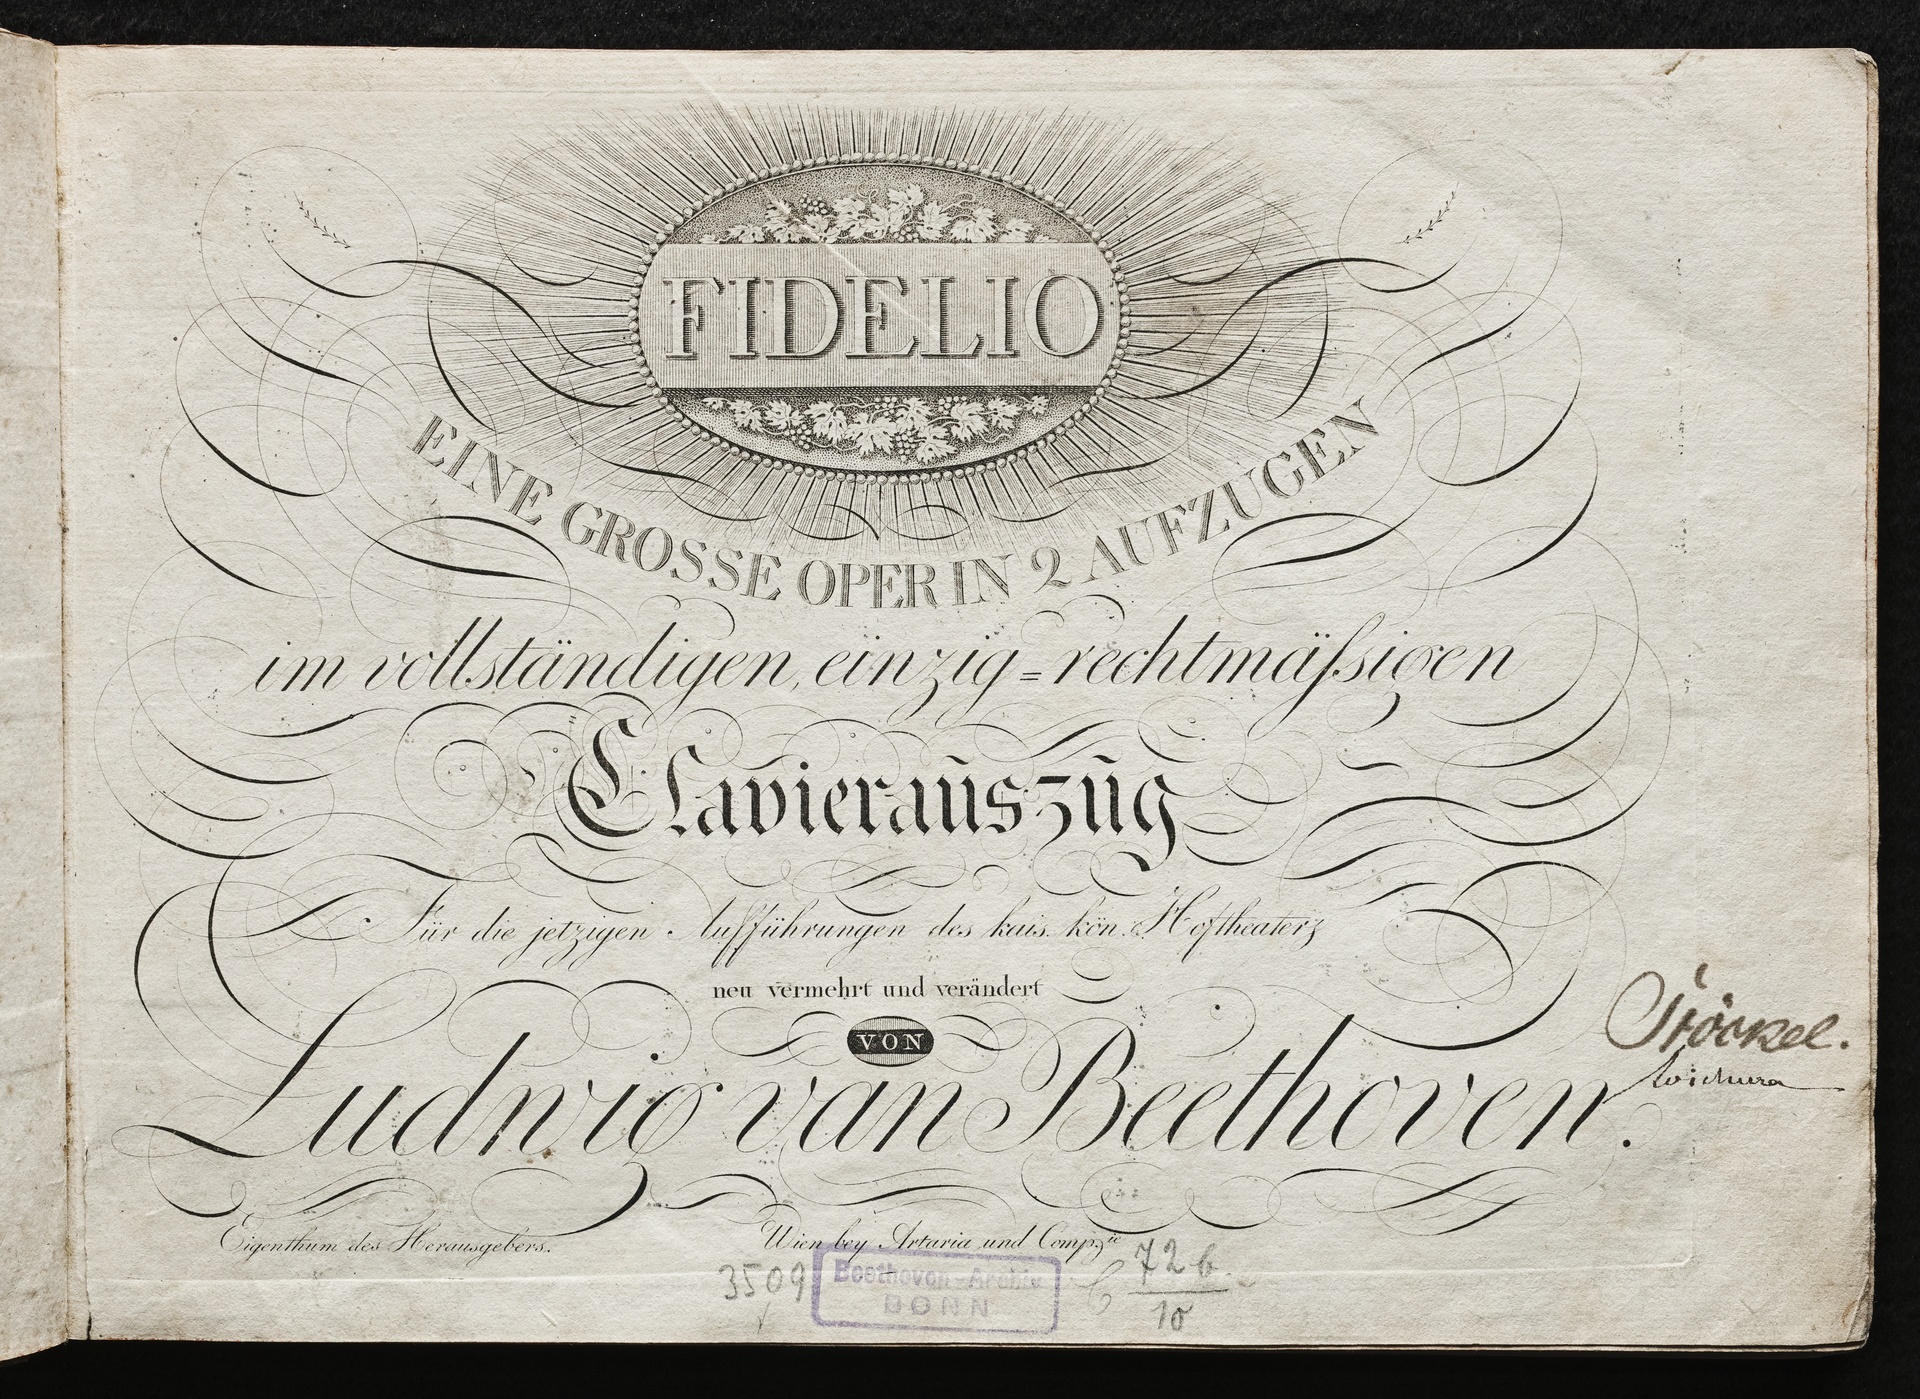 FIDELIO
EINE GROSSE OPER IN 2 AUFZUGEN
im vollständigen, einzig=rechtmäſsigen
Clavierauszug
Für die jetzigen Aufführungen des kais. kön. Hoftheaters
neu vermehrt und verändert
VON
Ludwig van Beethoven.
Stöckel.
Eigenthum des Herausgebers.
Wien bey Artaria und Comp.ie
3509
Beethoven-Archiv
BONN
C 72 b
10